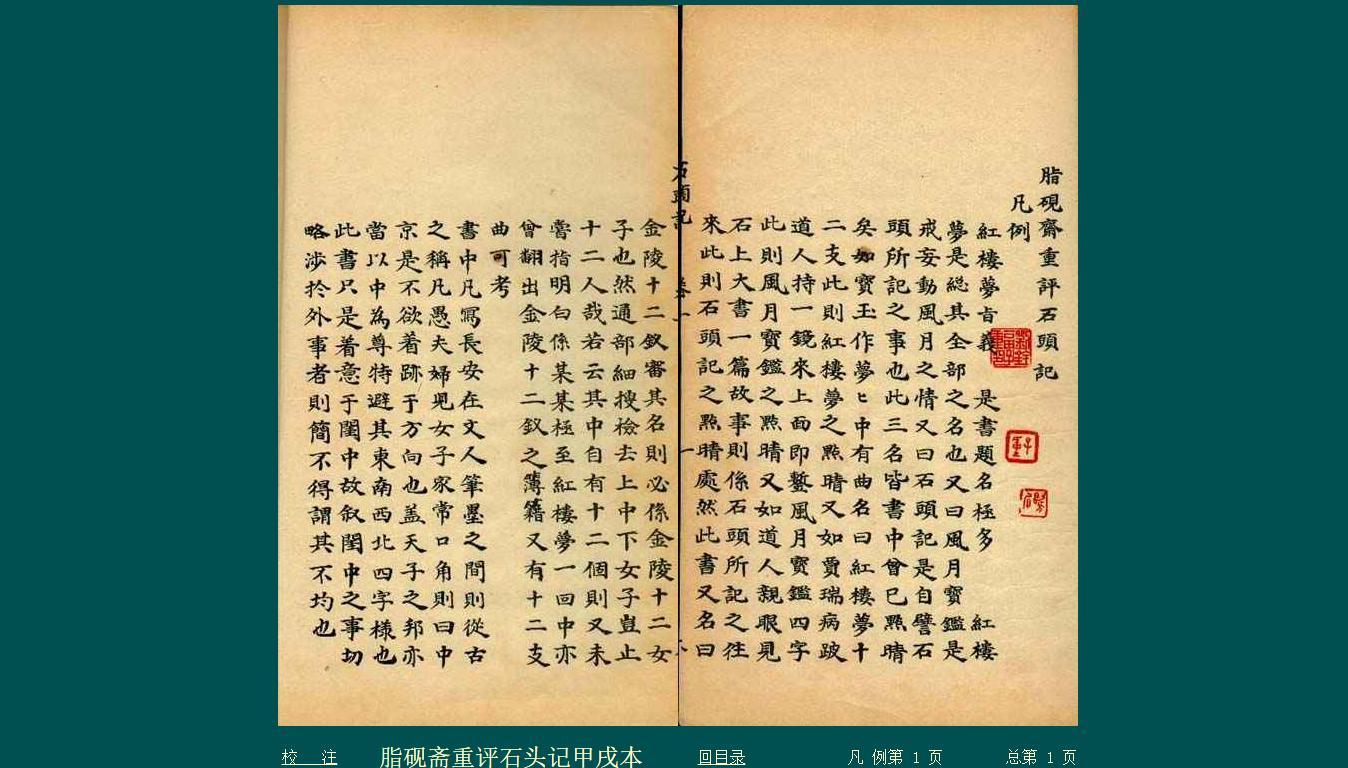 脂硯齋重評石頭記
凡例
紅樓夢旨義 是書題名極多 紅樓
夢是総其全部之名也又曰風月寶鑑是
戒妄動風月之情又曰石頭記是自譬石
頭所記之事也此三名皆書中曾已點晴
矣如寶玉作夢ヒ中有曲名曰紅樓夢十
二支此則紅樓夢之點晴又如賈瑞病跛
道人持一鏡來上面即鏨風月寶鑑四字
此則風月寶鑑之點晴又如道人親眼見
石上大書一篇故事則係石頭所記之徃
來此則石頭記之點晴處然此書又名曰
石頭記 卷一 一
金陵十二釵審其名則必係金陵十二女
子也然通部細搜檢去上中下女子豈止
十二人哉若云其中自有十二個則又未
嘗指明白係某某極至紅樓夢一回中亦
曾翻出金陵十二釵之簿籍又有十二支
曲可考
書中凡寫長安在文人筆墨之間則從古
之稱凡愚夫婦兒女子家常口角則曰中
京是不欲着跡于方向也盖天子之邦亦
當以中為尊特避其東南西北四字樣也
此書只是着意于閨中故叙閨中之事切
略涉於外事者則簡不得謂其不均也
校 注 脂砚斋重评石头记甲戌本 回目录 凡 例第 1 页 总第 1 页